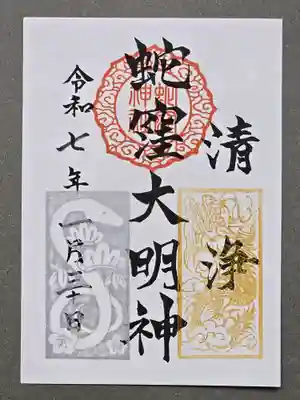 清浄
蛇窪大明神
令和七年
一月三十日